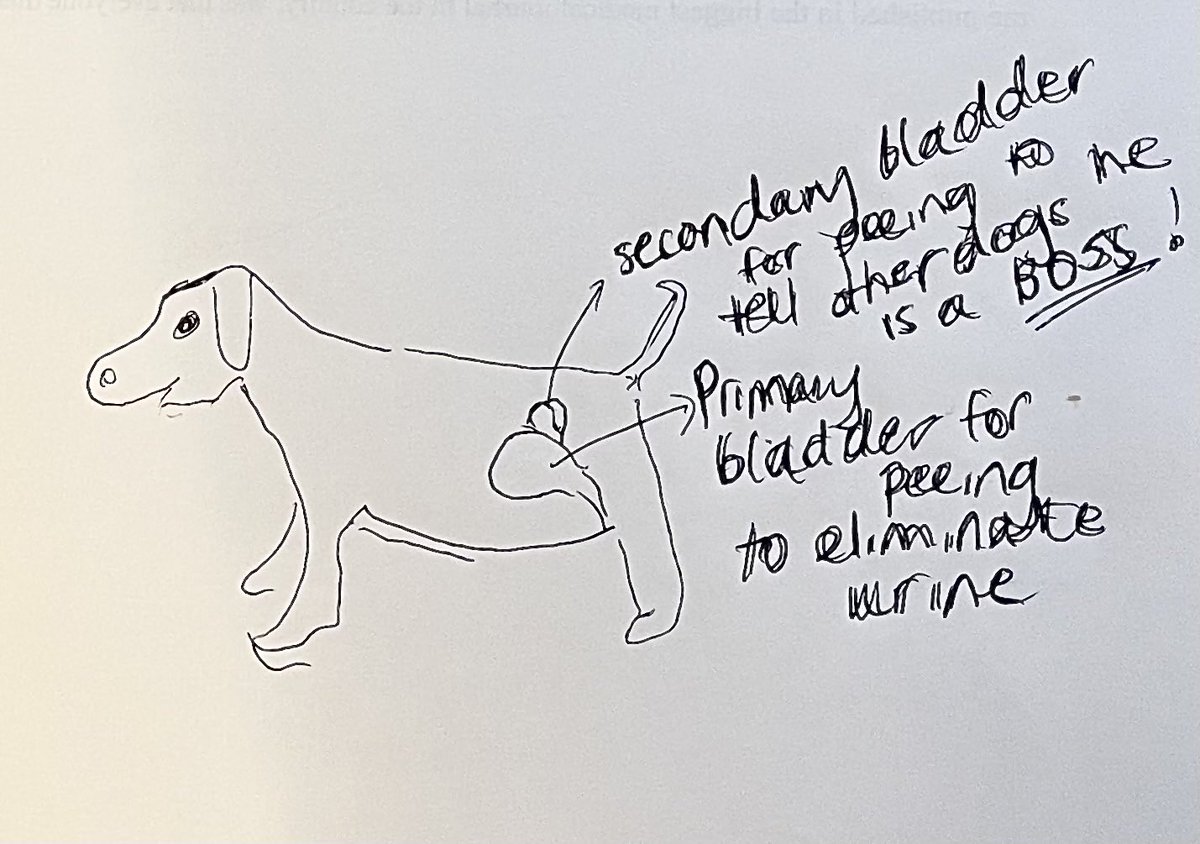 secondary bladder
for peeing to me
tell other dogs
is a BOSS!
Primary
bladder for
peeing
to eliminate
urine